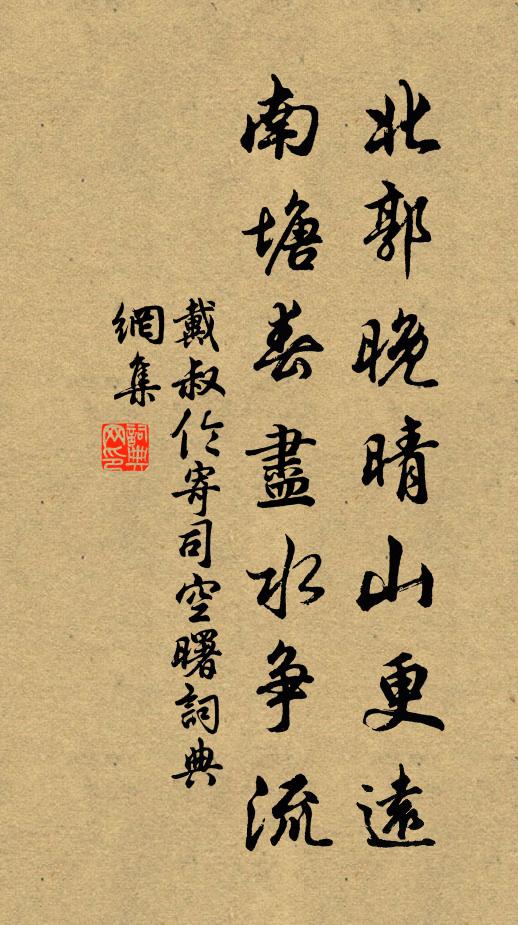 北郭晚晴山更遠
南塘春盡水争流
戴叔伦寄司空曙詞典
網集
詞典網印